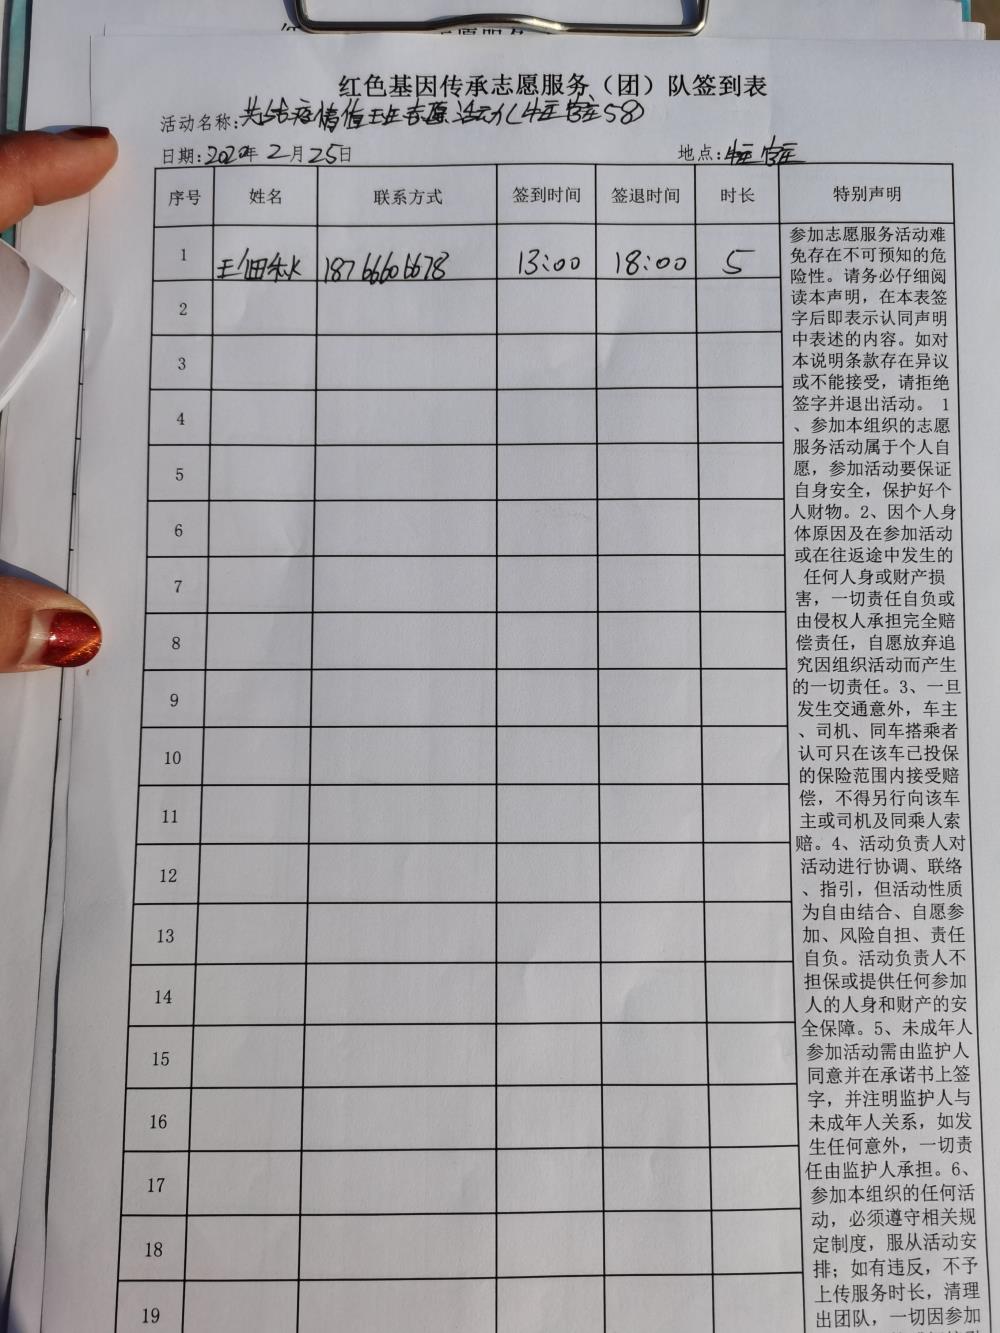 红色基因传承志愿服务（团）队签到表
活动名称:共战疫情值班志愿活动(牛王官庄58)
日期:2020年2月25日 地点:牛王官庄
序号 姓名 联系方式 签到时间 签退时间 时长 特别声明
1 18766606678 13:00 18:00 5
2
3
4
5
6
7
8
9
10
11
12
13
14
15
16
17
18
19
参加志愿服务活动难
免存在不可预知的危
险性。请务必仔细阅
读本声明，在本表签
字后即表示认同声明
中表述的内容。如对
本说明条款存在异议
或不能接受，请拒绝
签字并退出活动。 1
、参加本组织的志愿
服务活动属于个人自
愿，参加活动要保证
自身安全，保护好个
人财物。2、因个人身
体原因及在参加活动
或在往返途中发生的
任何人身或财产损
害，一切责任自负或
由侵权人承担完全赔
偿责任，自愿放弃追
究因组织活动而产生
的一切责任。3、一旦
发生交通意外，车主
、司机、同车搭乘者
认可只在该车已投保
的保险范围内接受赔
偿，不得另行向该车
主或司机及同乘人索
赔。4、活动负责人对
活动进行协调、联络
、指引，但活动性质
为自由结合、自愿参
加、风险自担、责任
自负。活动负责人不
担保或提供任何参加
人的人身和财产的安
全保障。5、未成年人
参加活动需由监护人
同意并在承诺书上签
字，并注明监护人与
未成年人关系，如发
生任何意外，一切责
任由监护人承担。6、
参加本组织的任何活
动，必须遵守相关规
定制度，服从活动安
排；如有违反，不予
上传服务时长，清理
出团队，一切因参加